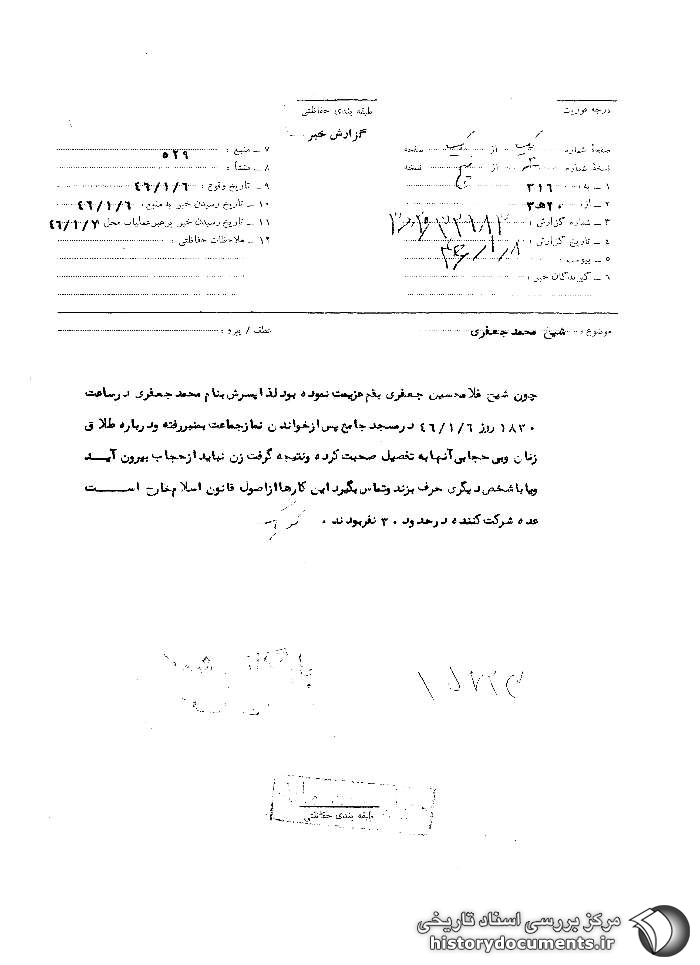 درجه فوریت
طبقه بندی حفاظتی
گزارش خبر
صفحهٔ شماره یک از یک صفحه
نسخهٔ شماره از نسخه
۱ ـ به : ۳۱۶
۲ ـ از : ۲۰هـ۳
۳ ـ شماره گزارش :
۴ ـ تاریخ گزارش : ۴۶/۱/۸
۵ ـ پیوست :
۶ ـ گیرندگان خبر :
۷ ـ منبع : ۵۲۹
۸ ـ منشأ :
۹ ـ تاریخ وقوع : ۴۶/۱/۶
۱۰ ـ تاریخ رسیدن خبر به منبع : ۴۶/۱/۶
۱۱ ـ تاریخ رسیدن خبر برهبر عملیات محل ۴۶/۱/۷
۱۲ ـ ملاحظات حفاظتی :
موضوع : شیخ محمد جعفری
عطف / پیرو :
چون شیخ غلامحسین جعفری بقم عزیمت نموده بود لذا پسرش بنام محمد جعفری در ساعت
۱۸۳۰ روز ۴۶/۱/۶ در مسجد جامع پس از خواندن نماز جماعت بمنبر رفته و درباره طلاق
زنان و بی حجابی آنها به تفصیل صحبت کرده و نتیجه گرفت زن نباید از حجاب بیرون آید
و یا با شخص دیگری حرف بزند و تماس بگیرد این کارها از اصول قانون اسلام خارج است
عده شرکت کننده در حدود ۳۰ نفر بودند .
طبقه بندی حفاظتی
مرکز بررسی اسناد تاریخی
historydocuments.ir